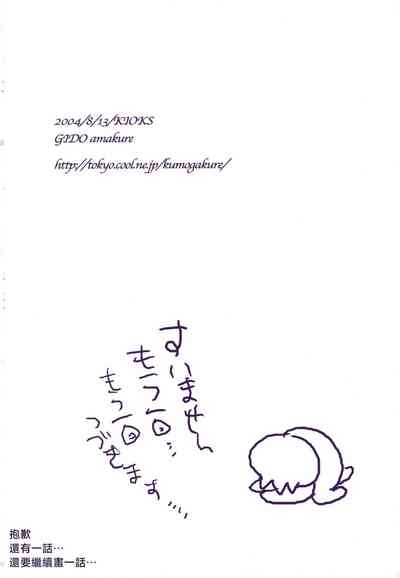 2004/8/13/KIOKS
GIDO amakure
http://tokyo.cool.ne.jp/kumogakure/
すいません
もう一回…
もう一回
つづきます……
抱歉
還有一話…
還要繼續畫一話…